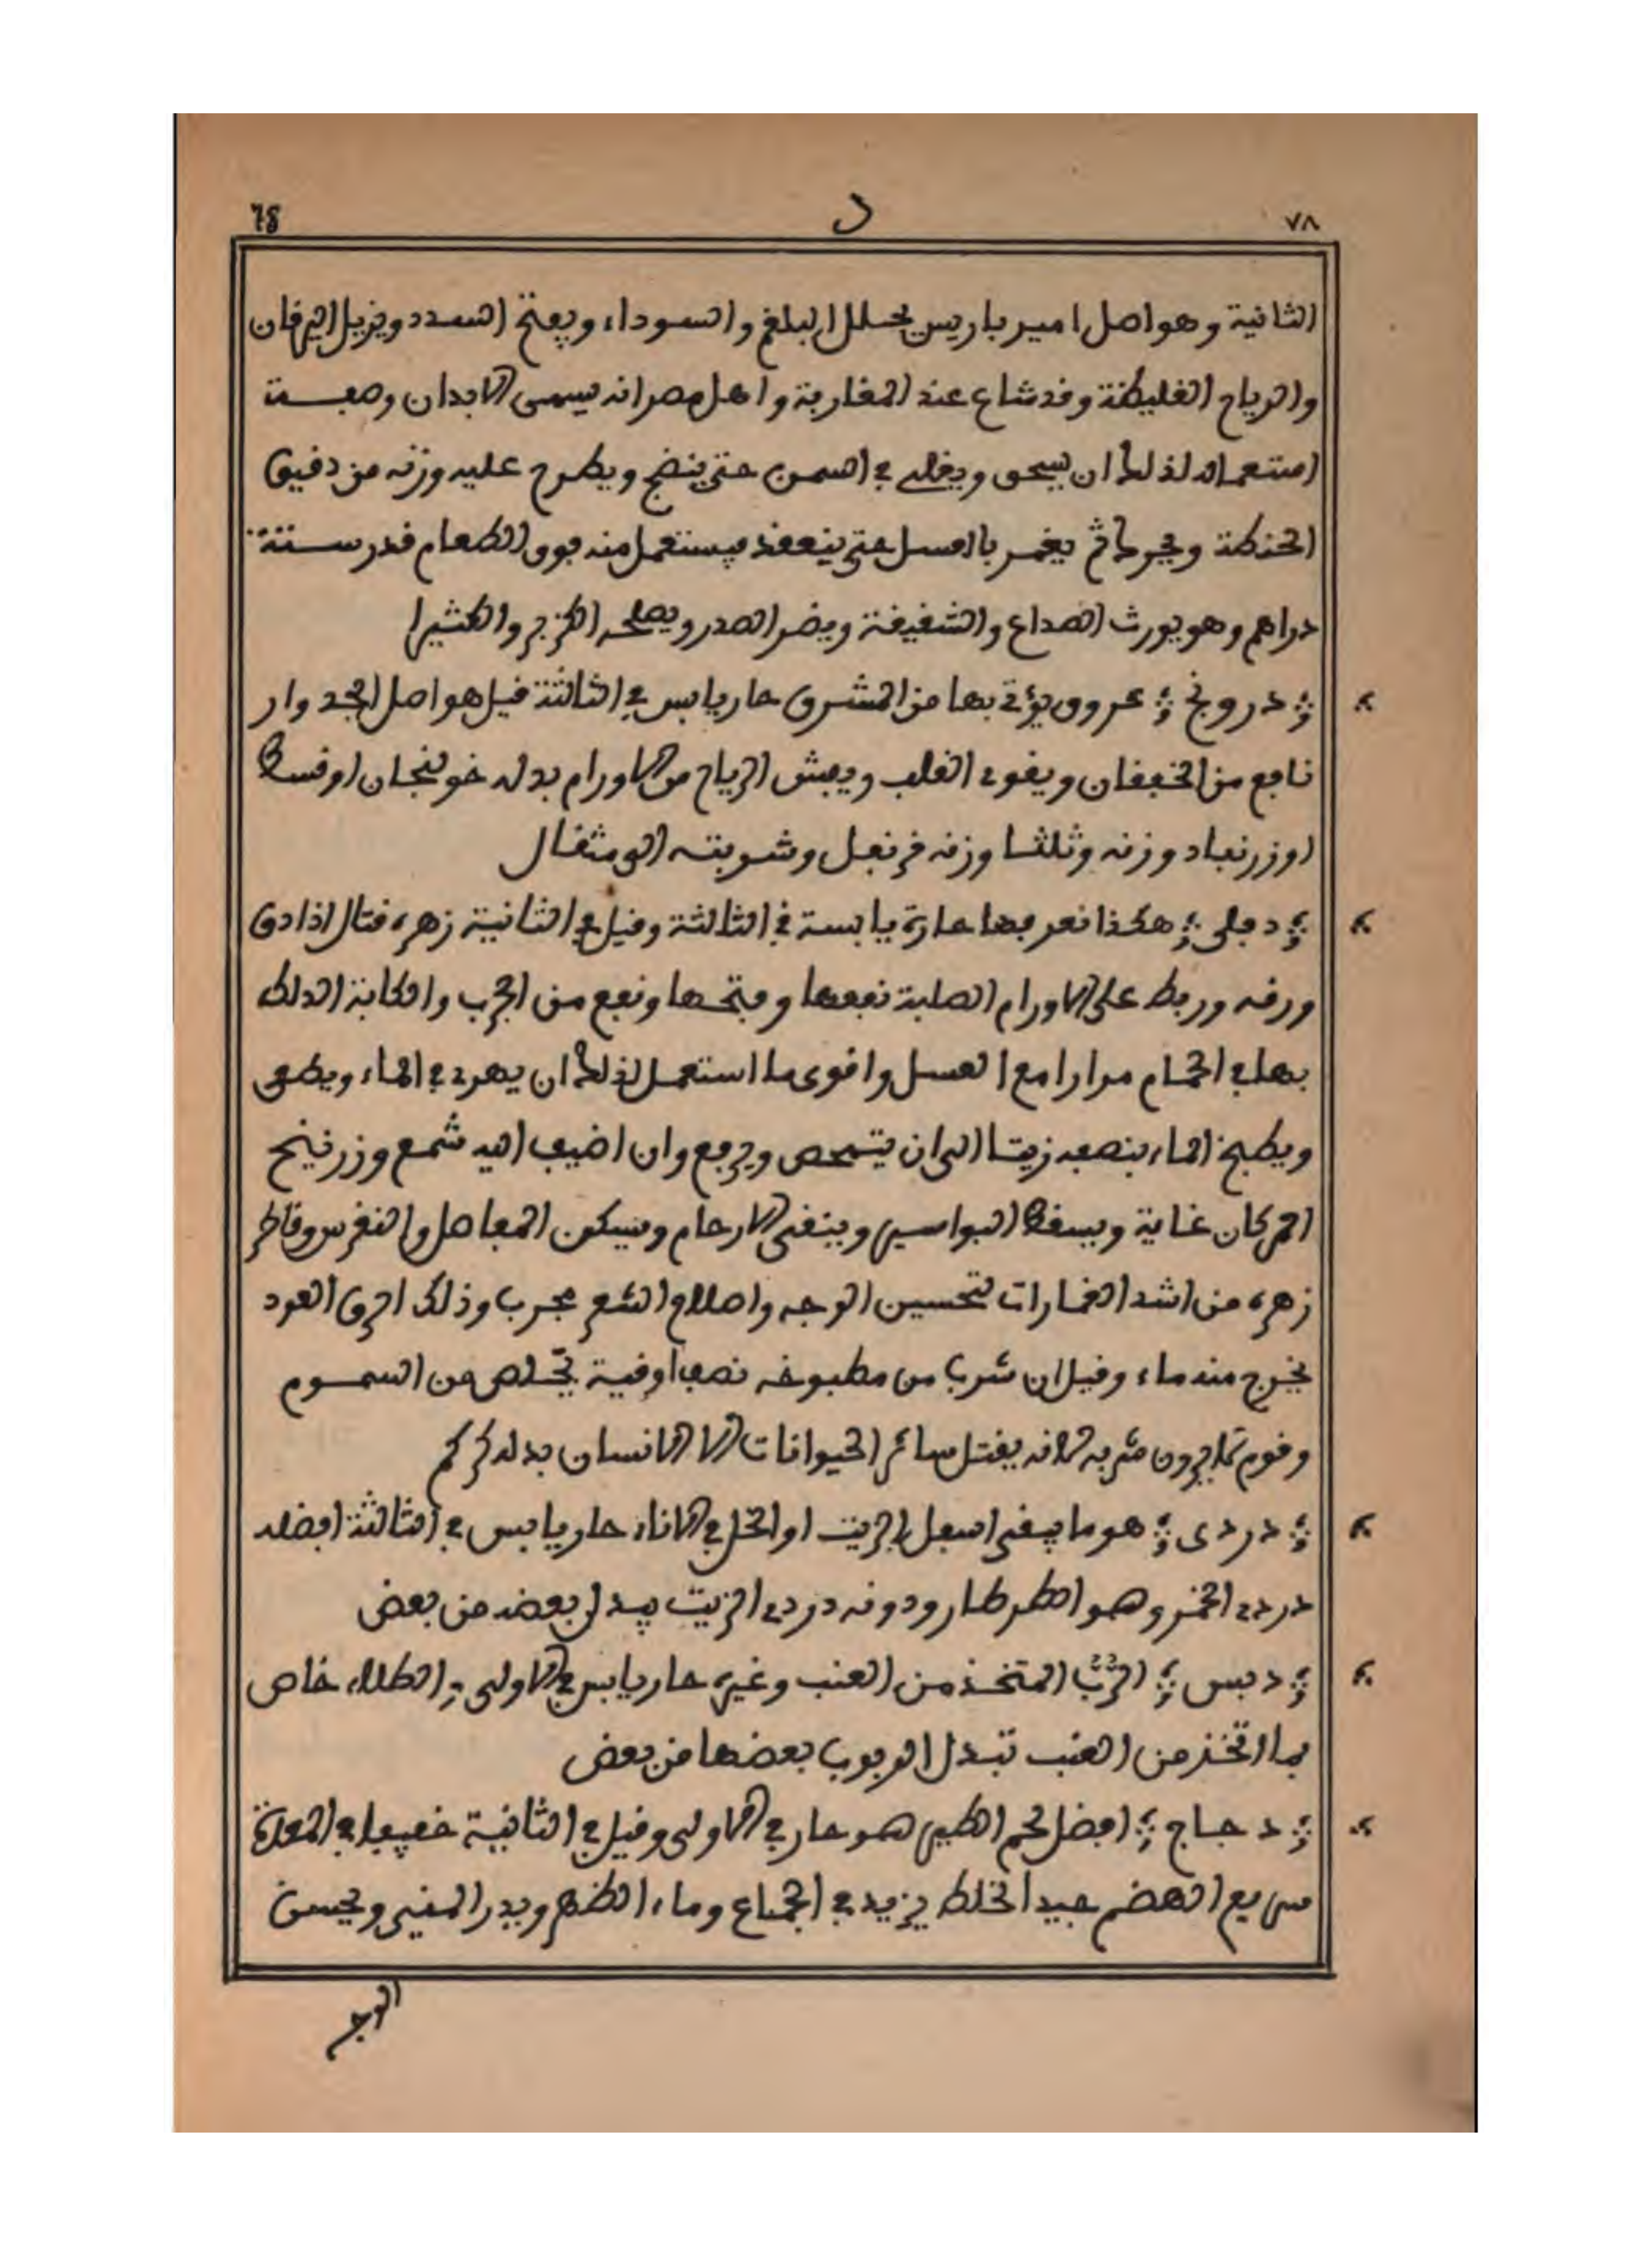 ٧٨ د 78
الثانية وهو اصل امير باريس يحلل البلغم والسوداء ويفتح السدد ويزيل اليرقان
والرياح الغليظة وقد شاع عند المغاربة واهل مصر انه يسمى الابدان وصفة
استعماله لذلك ان يسحق ويغلى في السمن حتى ينضج ويطرح عليه وزنه من دقيق
الحنطة ثم يغمر بالعسل حتى ينعقد فيستعمل منه فوق الطعام قدر ستة
دراهم وهو يورث الصداع والشقيقة ويضر الصدر ويصلحه الكزبر والكثيرا
درونج عروق يؤتى بها من المشرق حار يابس في الثالثة قيل هو اصل الجدوار
نافع من الخفقان ويقوى القلب ويفش الرياح من الاورام بدله خولنجان او قسط
او زرنباد وزنه وثلثا وزنه قرنفل وشربته الى مثقال
دفلى هكذا نعرفها حارة يابسة في الثالثة وقيل في الثانية زهره قتال اذا دق
ورقه وربط على الاورام الصلبة نفعها وفتحها ونفع من الجرب والكابة الدلك
بها في الحمام مرارا مع العسل واقوى ما استعمل لذلك ان يهرى في الماء ويصفى
ويطبخ الماء بنصفه زيتا الى ان يتمحص ويرفع وان اضيف اليه شمع وزرنيخ
احمر كان غاية ويسقط البواسير وينقى الارحام ويسكن المفاصل والنقرس وقاطر
زهره من اشد الغمارات لتحسين الوجه واصلاح الشعر مجرب وذلك احرق العود
يخرج منه ماء وقيل ان شرب من مطبوخه نصف اوقية يخلص من السموم
وقوم لا يرون شربه لانه يقتل سائر الحيوانات الا الانسان بدله كركم
دردى هو ما يبقى اسفل الزيت او الخل في الاناء حار يابس في الثالثة افضله
دردى الخمر وهو الطرطار ودونه دردى الزيت يبدل بعضه من بعض
دبس الرُّبّ المتخذ من العنب وغيره حار يابس في الاولى والطلاء خاص
بما اتخذ من العنب تبدل الربوب بعضها من بعض
دجاج افضل لحم الطير هو حار في الاولى وقيل في الثانية خفيف في المعدة
سريع الهضم جيد الخلط يزيد في الجماع وماء الظهر ويدر المنى ويحسن
الوجه